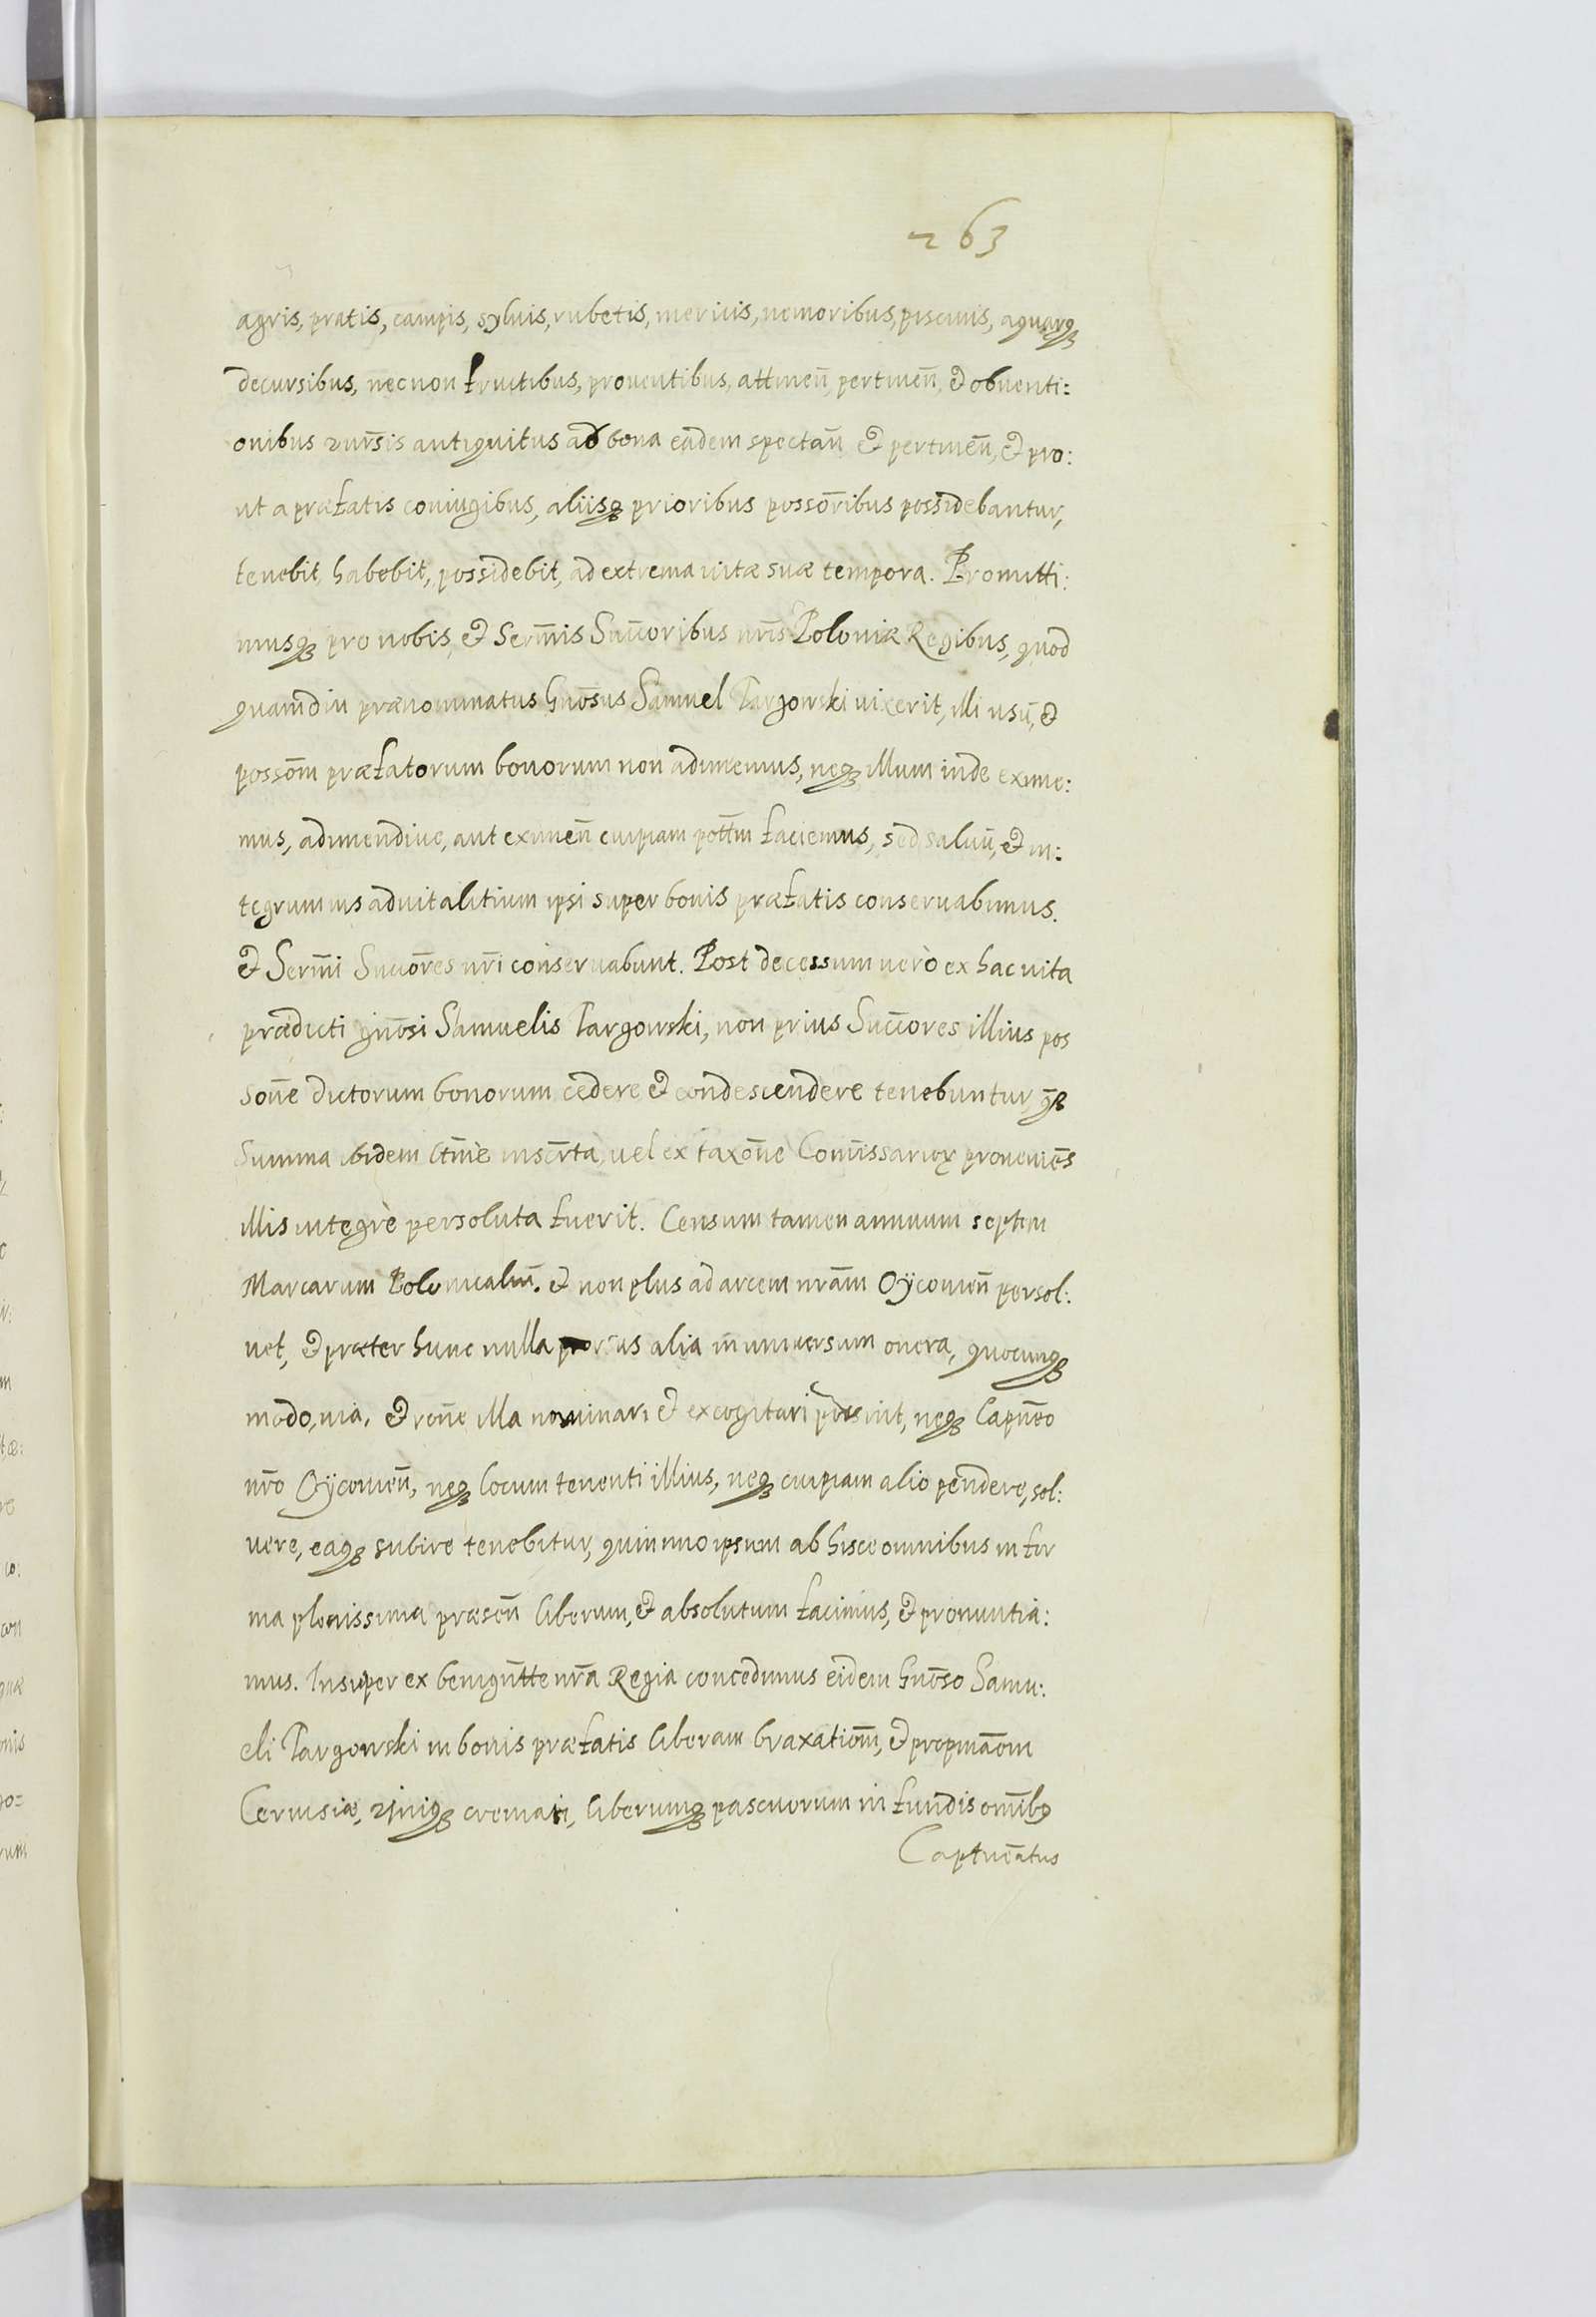 263
agris, pratis, campis, syluis, rubetis, mericis, nemoribus, piscinis, aquarq₃
decursibus, necnon fructibus, prouentibus, attinen̄, pertinen̄, & obuenti:
onibus vnīsis antiquitus ad bona eadem spectan̄ & pertinen̄, & pro:
ut a præfatis coniugibus, aliisq₃ prioribus possōribus possidebantur,
tenebit, habebit, possidebit, ad extrema uitæ suæ tempora. Promitti:
musq₃ pro nobis, & Serm̄is Succ̄oribus nr̄is Poloniæ Regibus, quod
quamdiu prænominatus Gnōsus Samuel Targowski uixerit, illi usū, &
possōm præfatorum bonorum non adimemus, neq₃ illum inde exime:
mus, adimendiue, aut eximen̄ cuipiam pott̄m faciemus, sed saluū, & in:
tegrum ius aduitalitium ipsi super bonis præfatis conseruabimus.
& Serm̄i Succōres nr̄i conseruabunt. Post decessum uerò ex hac uita
prædicti gnōsi Samuelis Targowski, non prius Succ̄ores illius pos
son̄e dictorum bonorum cedere & condescendere tenebuntur, q̄₃
Summa ibidem Ltīmè inscr̄ta, uel ex taxon̄e Com̄issariorꝝ proueniēs
illis integrè persoluta fuerit. Censum tamen annuum septem
Marcarum Polonicaliū. & non plus ad arcem nrām Oÿcouien̄ persol:
uet, & præter hunc nulla prorsus alia in uniuersum onera, quocunq₃
modo, uia, & ron̄e illa nominari & excogitari possint, neq₃ Capn̄eo
nr̄o Oÿcouien̄, neq₃ locum tenenti illius, neq₃ cuipiam alio pendere, sol:
uere, eaq₃ subire tenebitur, quinimo ipsum ab hisce omnibus in for
ma plenissima præsen̄ liberum, & absolutum facimus, & pronuntia:
mus. Insuper ex benign̄tte nr̄a Regia concedimus eidem Gnōso Samu:
eli Targowski in bonis præfatis liberam braxatiōm, & propināom
Ceruisiæ, viniq₃ cremati, liberumq₃ pascuorum in fundis omībꝰ
Captuēatus